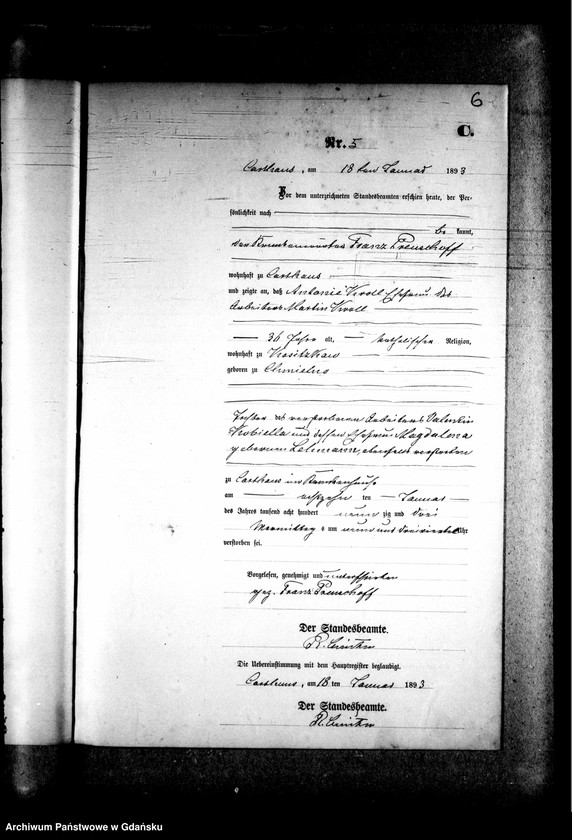 6
C.
Nr. 5
Carthaus, am 18 ten Januar 1893
Vor dem unterzeichneten Standesbeamten erschien heute, der Per-
sönlichkeit nach
be kannt,
der Krankenwärter Franz Preuschoff
wohnhaft zu Carthaus
und zeigte an, daß Antonie Kroll Ehefrau des
Arbeiters Martin Kroll
36 Jahre alt, katholischer Religion,
wohnhaft zu
geboren zu Chmielno
Tochter des verstorbenen Arbeiters Valentin
Kobiella und dessen Ehefrau Magdalena
geborenen Lehmann, ebenfalls verstorben
zu Carthaus im Krankenhause
am achtzehn ten Januar
des Jahres tausend acht hundert neun zig und drei
Vormittags um neun und dreiviertel Uhr
verstorben sei.
Vorgelesen, genehmigt und unterschrieben
gez. Franz Preuschoff
Der Standesbeamte.
Die Uebereinstimmung mit dem Hauptregister beglaubigt.
Carthaus, am 18 ten Januar 1893
Der Standesbeamte.
Archiwum Państwowe w Gdańsku